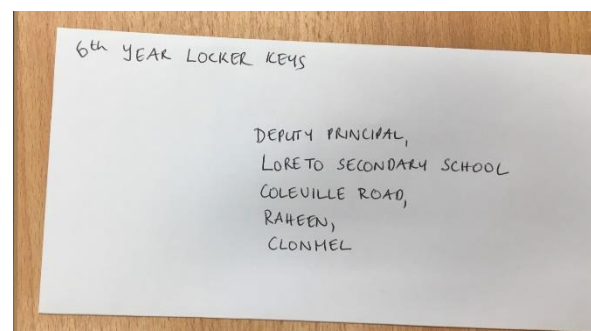 6th YEAR LOCKER KEYS
DEPUTY PRINCIPAL,
LORETO SECONDARY SCHOOL
COLEVILLE ROAD,
RAHEEN,
CLONMEL